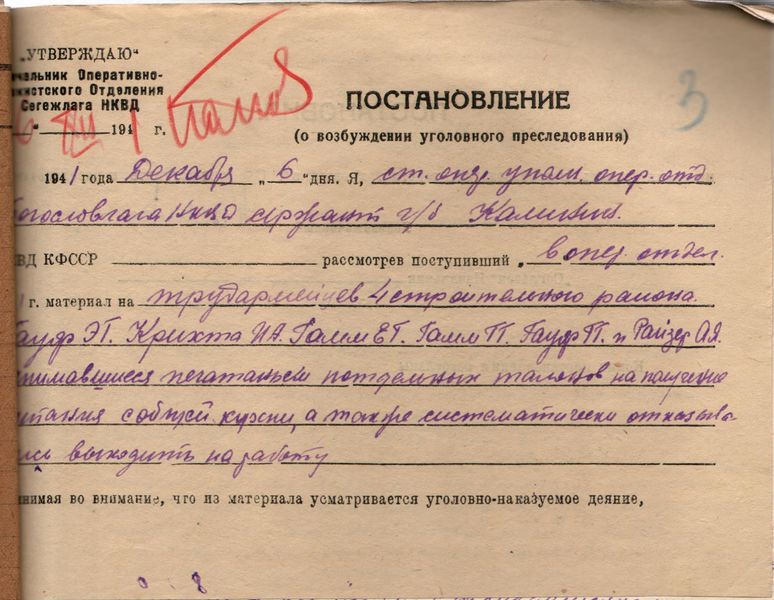 „УТВЕРЖДАЮ“
чальник Оперативно-
кистского Отделения
Сегежлага НКВД
“ XII 1941 г.
3
ПОСТАНОВЛЕНИЕ
(о возбуждении уголовного преследования)
1941 года Декабря „6“ дня. Я, ст. опер. уполн. опер. отд.
Богословлага НКВД сержант г/б Калинин.
ВД КФССР рассмотрев поступивший „ в опер. отдел.
г. материал на трудармейцев 4 строительного района
Гауф Э.Г. Крихта И.А. Гамм Е.Г. Гамм П.П. Гауф П. и Райзер А.Я.
нимавшиеся печатаньем потдельных талонов на получение
питания с общей кухни, а также систематически отказыва
лись выходить на работу
инимая во внимание, что из материала усматривается уголовно-наказуемое деяние,